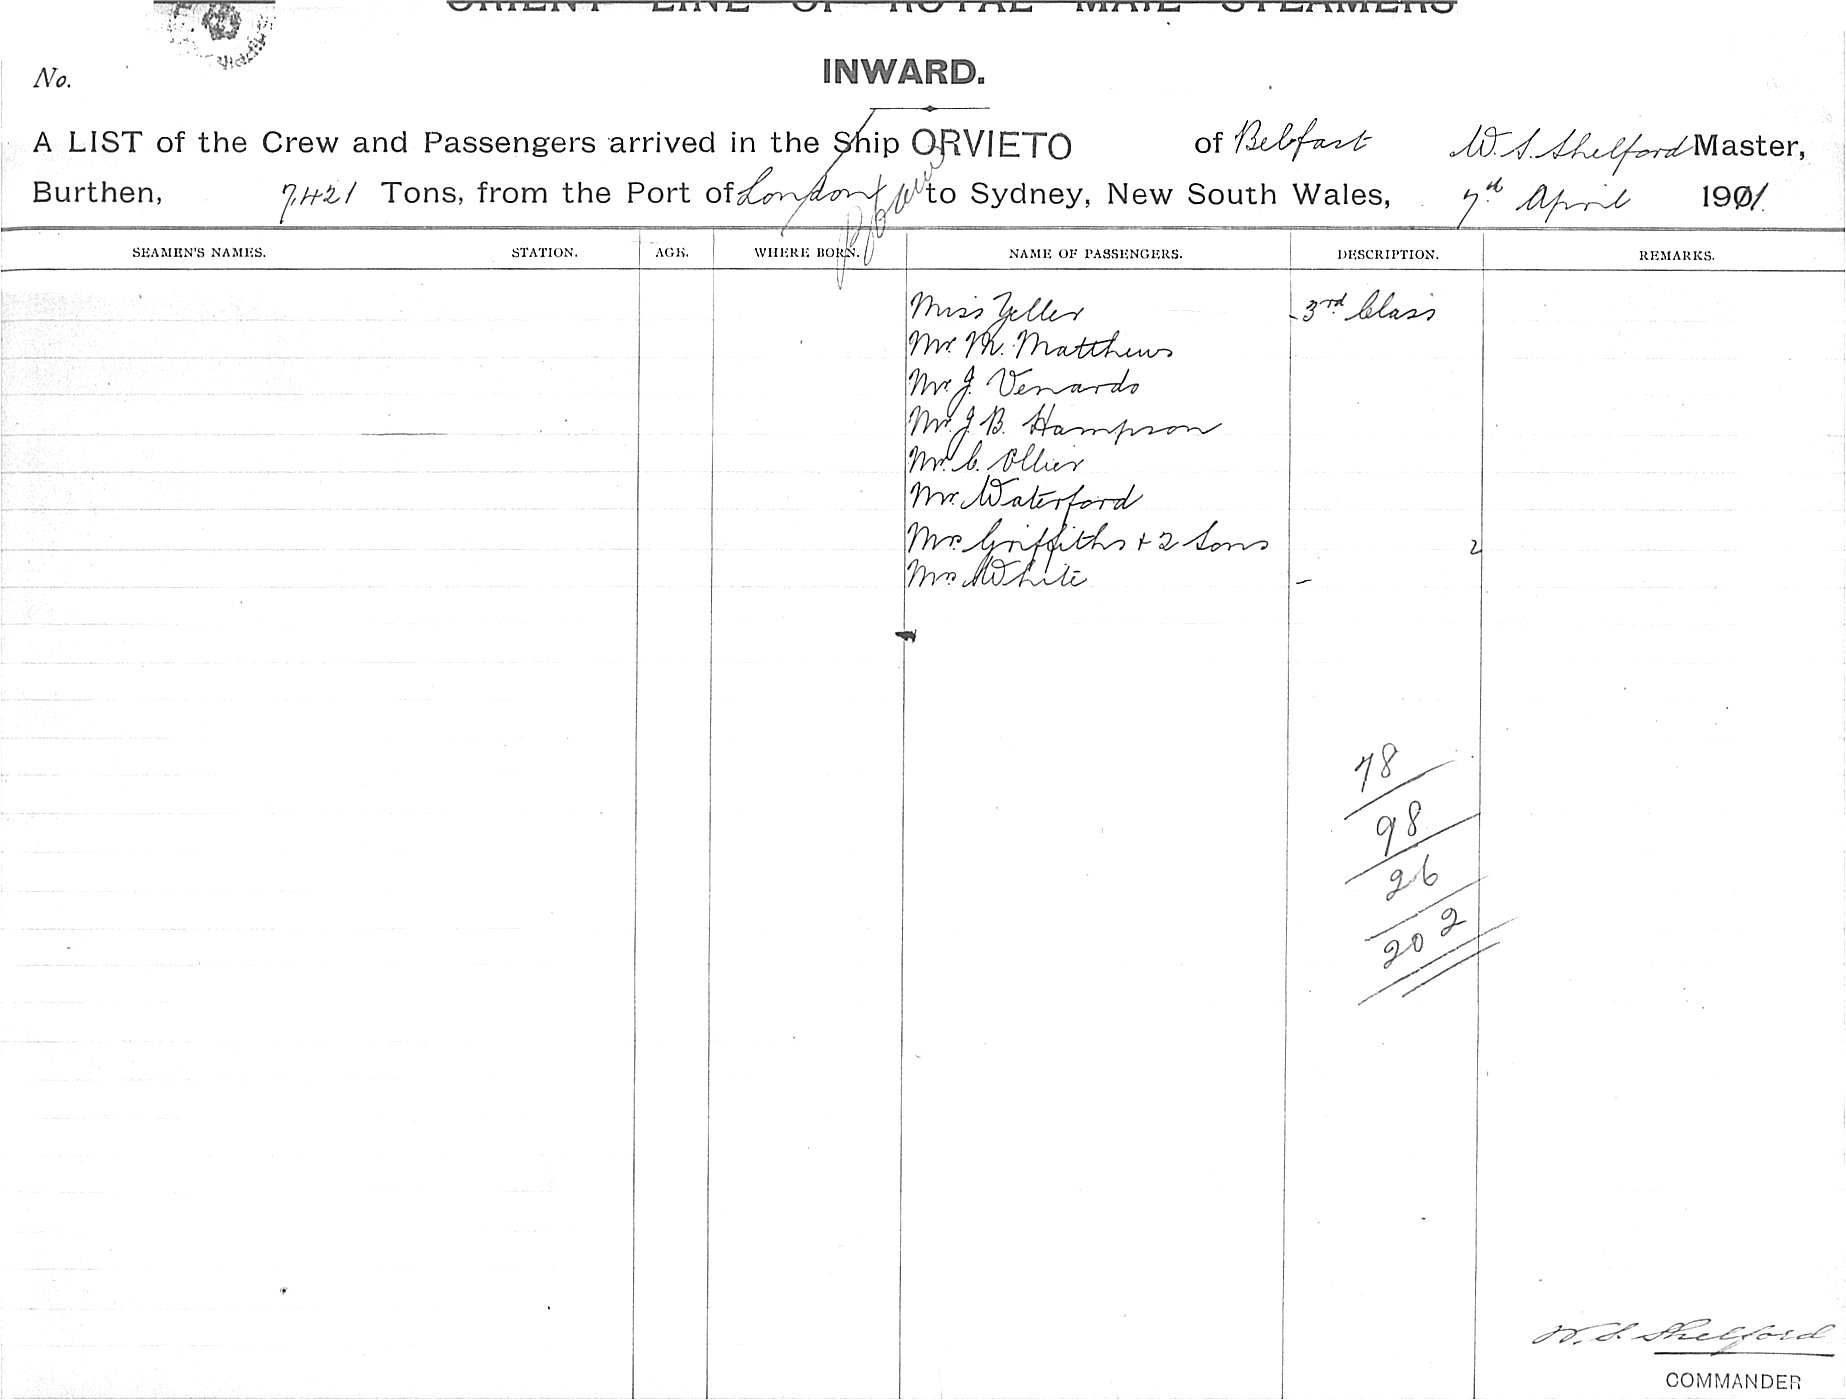 ORIENT LINE OF ROYAL MAIL STEAMERS
No.
INWARD.
A LIST of the Crew and Passengers arrived in the Ship ORVIETO of Belfast W. S. Shelford Master,
Burthen, 7,421 Tons, from the Port of London to Sydney, New South Wales, 7th April 1901
SEAMEN'S NAMES. STATION. AGE. WHERE BORN. NAME OF PASSENGERS. DESCRIPTION. REMARKS.
Miss Yeller 3rd Class
Mr. M. Matthews
Mr. J. Venardo
Mr. J. B. Hampson
Mr. C. Ollier
Mr. Waterford
Mrs. Griffiths + 2 Sons 2
Mrs. White
78
98
26
202
W. S. Shelford
COMMANDER